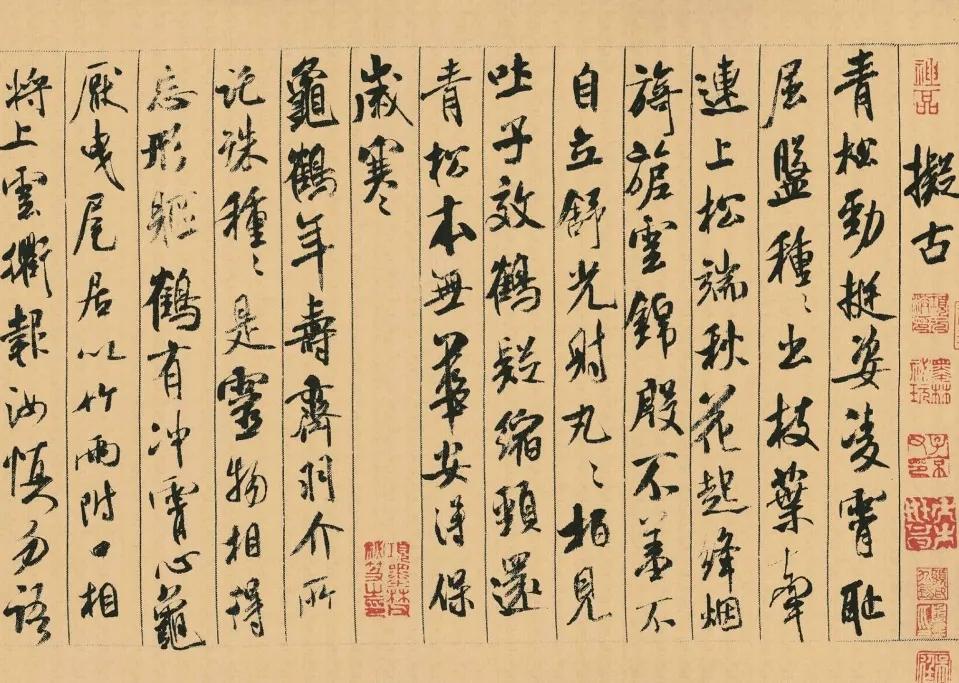 擬古
青松勁挺姿凌霄恥
屈盤種〻出枝葉牽
連上松端秋花起絳烟
旖旎雲錦殷不羞不
自立舒光射丸〻柏見
吐子效鶴疑縮頸還
青松本無華安得保
歲寒〻
龜鶴年壽齊羽介所
託殊種〻是靈物相得
忘形軀鶴有冲霄心龜
厭曳尾居以竹兩附口相
將上雲衢報汝慎勿語